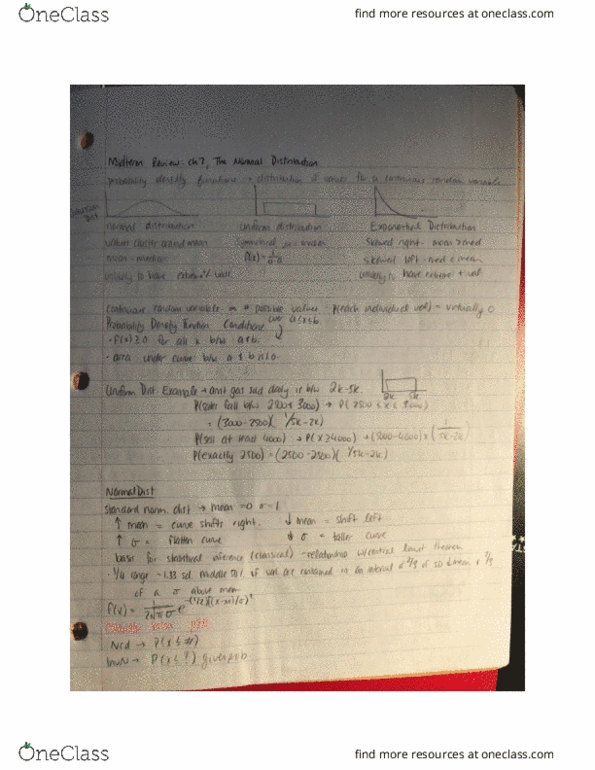 OneClass
find more resources at oneclass.com
Midterm Review Ch 7, The Normal Distribution
probability density functions → distribution of values for a continuous random variable
normal distribution
Uniform distribution
Exponential Distribution
values cluster around mean
Symmetrical
skewed right - mean > med
mean = median
skewed left - med < mean
unlikely to have extreme vals
unlikely to have extreme + val
Continuous random variable possible values P(each individual val) = virtually 0
Probability Density Function Conditions
· f(x) ≥ 0 for all x b/w a & b.
· area under curve b/w a & b is 1.0.
Uniform Dist. Example → amt gas sold daily is b/w 2k-5k.
2k 5k
fall b/w 2500 & 3000) → P(2500 ≤ x ≤ 3000)
= (3000-2500)(1/5k-2k)
P(sell at least 4000) → P(x ≥ 4000) → (5000-4000) × (1/5k-2k)
P(exactly 2500) = (2500-2500)(1/5k-2k)
Normal Dist
Standard norm. dist → mean = 0 σ = 1
↑ mean = curve shifts right. ↓ mean = shift left
↑ σ = flatten curve ↓ σ = taller curve
basis for statistical inference (classical) - relationship w/ central limit theorem
middle 50% of val are contained in an interval of
of a σ above mean
Ncd → P(x ≤ #)
InvN → P(x ≤ ?) given prob
OneClass
find more resources at oneclass.com